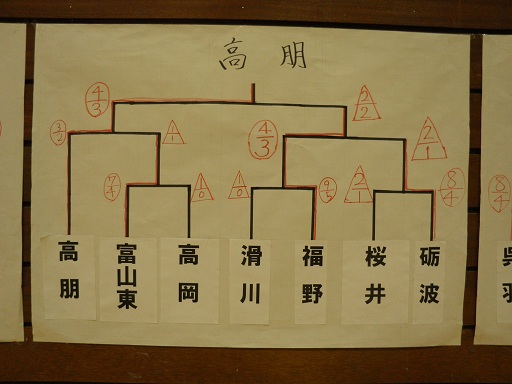 高朋
4/3
2/2
3/2
1/1
4/3
2/1
7/4
1/0
1/0
9/5
2/1
8/4
8/4
高朋
富山東
高岡
滑川
福野
桜井
砺波
呉羽